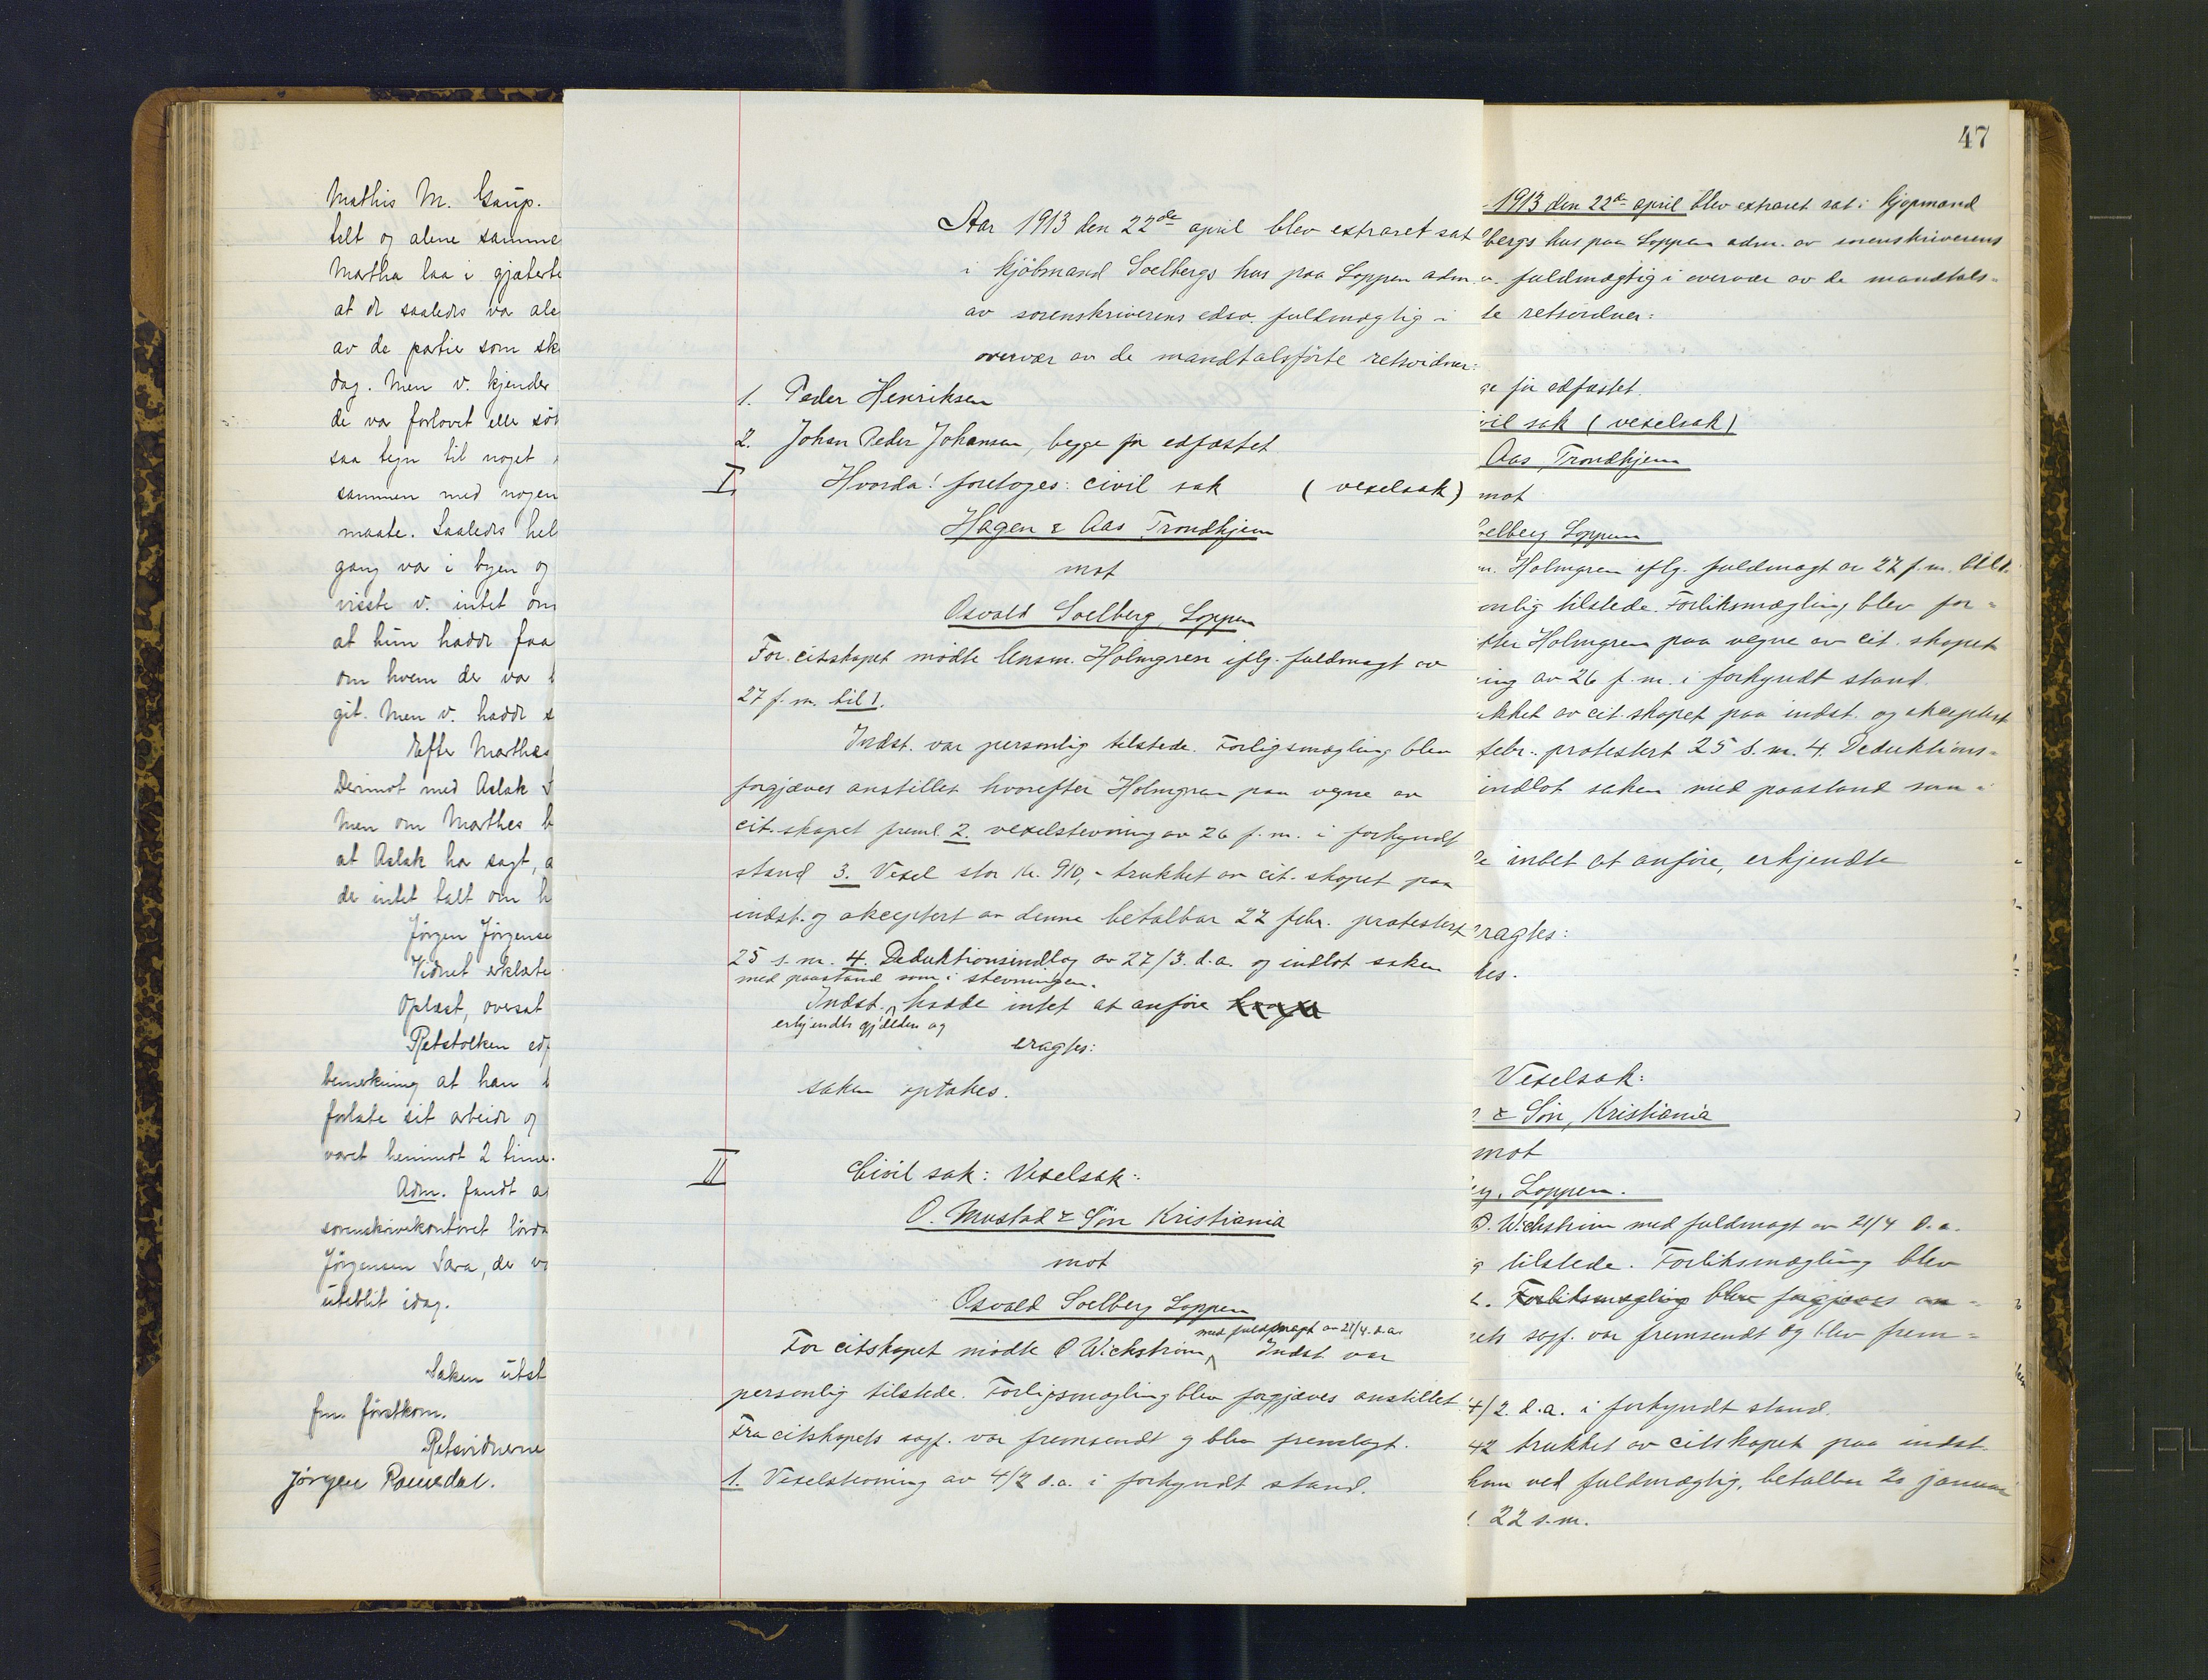 Mathis M. Gaup.
telt og alene samme
Martha laa i gjæterte
at de saaledes var ale
av de partier som sk
dag. Men v. kjender
de var forlovet elle
saa tegn til noget
sammen med nogen
maate. Saaledes hel
gang var i byen og
visste v. intet om
at hun hadde faa
om hvem der var
git. Men v. hadde s
Efter Marthas
Derimot med Aslak
Men om Marthes b
at Aslak har sagt, a
de intet talt om h
Jørgen Jørgense
Vidnet erklæte
Oplæst, oversat
Retstolken ed
bemerkning at han
forlate sit arbeide og
været henimot 2 time
Adm. fandt a
sorenskriverkontoret lørda
Jørgensen Sara, der
uteblit idag.
Saken utst
fm. førstkom.
Retsvidnerne
Jørgen Romsdal.
Aar 1913 den 22de april blev extraret sat
i kjöbmand Soelbergs hus paa Loppen adm.
av sorenskriverens edsv. fuldmægtig i
overvær av de mandtalsförte retsvidner:
1. Peder Henriksen
2. Johan Peder Johansen, begge før edfæstet
I. Hvorda! foretoges: civil sak (vexelsak)
Hagen & Aas Trondhjem
mot
Osvald Soelberg, Loppen
For citskapet mödte lensm. Holmgren iflg. fuldmagt av
27 f.m. til 1.
Indst. var personlig tilstede. Forligsmægling blev
forgjæves anstillet hvorefter Holmgren paa vegne av
cit.skapet freml. 2. vexelstevning av 26 f.m. i forkyndt
stand 3. Vexel stor Kr. 910,- trukket av cit.skapet paa
indst. og akceptert av denne betalbar 22 febr. protestert
25 s.m. 4. Deduktionsindlæg av 27/3. d.a. og indlot saken
med paastand som i stevningen.
Indst. hadde intet at anføre
erkjendte gjælden og
eragtes:
saken optakes.
II Civil sak: Vexelsak:
O. Mustad & Søn Kristiania
mot
Osvald Soelberg Loppen
med fuldmagt av 21/4. d.a.
For citskapet mödte O Wickstrøm, Indst var
personlig tilstede. Forligsmægling blev forgjæves anstillet.
Fra citskapets sagf. var fremsendt og blev fremlagt.
1. Vexelstevning av 4/2 d.a. i forkyndt stand.
47
1913 den 22de april blev extraret sat i kjøpmand
bergs hus paa Loppen adm. av sorenskriverens
v. fuldmægtig i overvær av de mandtals=
te retsvidner:
ge før edfæstet.
vil sak (vexelsak)
Aas, Trondhjem
mot
oelberg Loppen
m. Holmgren iflg. fuldmagt av 27 f.m.
onlig tilstede. Forliksmægling blev for=
fter Holmgren paa vegne av cit.skapet
ing av 26 f.m. i forkyndt stand.
ukket av cit.skapet paa indst. og akceptert
febr. protestert 25 s.m. 4. Deduktions=
indlot saken med paastand som i
e intet at anføre, erkjendte
ragtes:
kes.
Vexelsak:
& Søn, Kristiania
mot
g, Loppen.
O. Wickstrøm med fuldmagt av 21/4 d.a.
g tilstede. Forliksmægling blev
t. Forliksmægling blev forgjæves an=
ets sagf. var fremsendt og blev frem=
4/2. d.a. i forkyndt stand.
42 trukket av citskapet paa indst.
ham ved fuldmægtig, betalbar 20 januar
22 s.m.